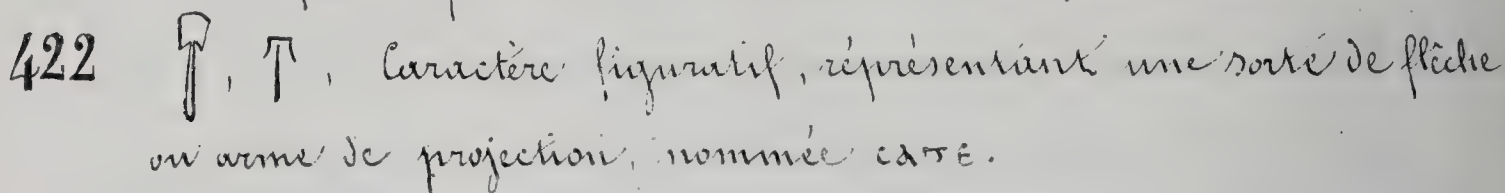 422 𓌙, 𓌙, Caractère figuratif, réprésentant une sorte de flêche
ou arme de projection, nommée ⲥⲁⲧⲉ.